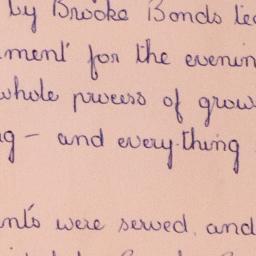 by Brooke Bonds tea
ment' for the evenin
whole process of grow
g - and every-thing
nts were served, and